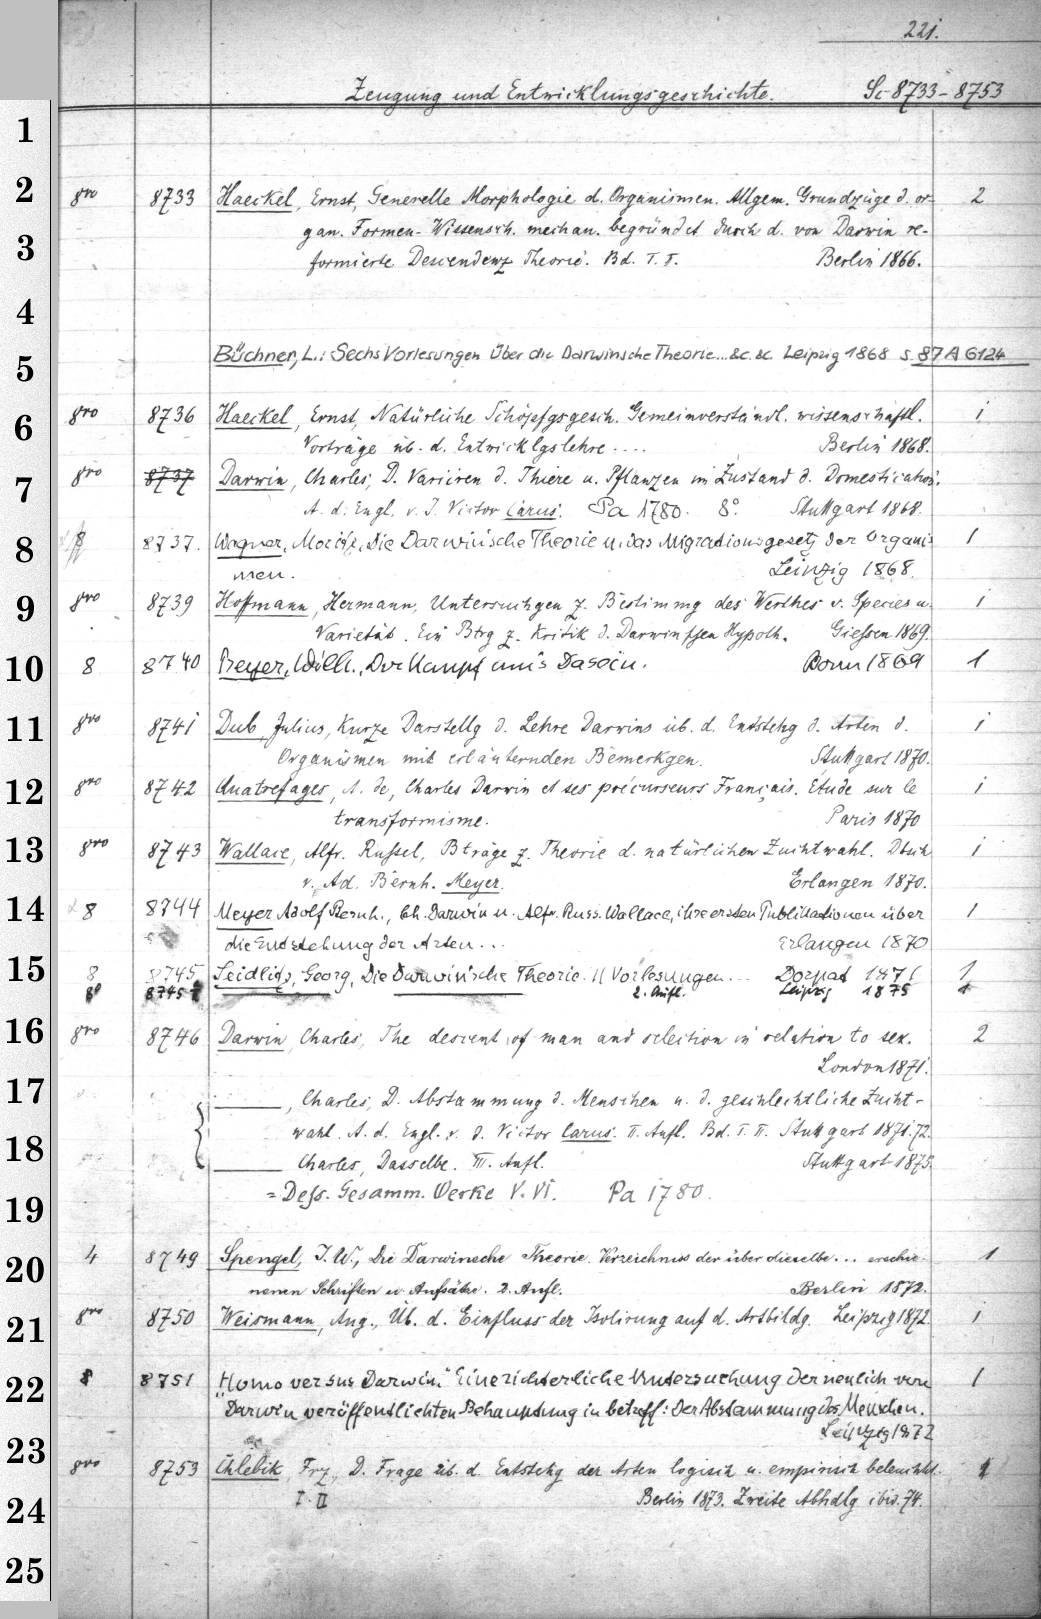 221.
Zeugung und Entwicklungsgeschichte. Sc 8733-8753
1
2
3
4
5
6
7
8
9
10
11
12
13
14
15
16
17
18
19
20
21
22
23
24
25
8vo 8733 Haeckel, Ernst, Generelle Morphologie d. Organismen. Allgem. Grundzüge d. or- 2
gan. Formen-Wissensch. mechan. begründet durch d. von Darwin re-
formierte Descendenz Theorie. Bd. I. II. Berlin 1866.
Büchner, L.: Sechs Vorlesungen über die Darwinsche Theorie... &c. &c. Leipzig 1868 s. 87 A 6124
8vo 8736 Haeckel, Ernst, Natürliche Schöpfgsgesch. Gemeinverständl. wissenschaftl. 1
Vorträge üb. d. Entwicklgslehre .... Berlin 1868.
8vo 8737 Darwin, Charles, D. Variiren d. Thiere u. Pflanzen im Zustand d. Domestication.
A. d. Engl. v. J. Victor Carus. Pa 1780. 8°. Stuttgart 1868.
8 8737. Wagner, Moritz, Die Darwin'sche Theorie u. das Migrationsgesetz der Organis- 1
men. Leipzig 1868.
8vo 8739 Hoffmann, Hermann, Untersuchgen z. Bestimmg des Werthes v. Species u. 1
Varietät. Ein Btrg z. Kritik d. Darwin'schen Hypoth. Giessen 1869.
8 8740 Preyer, Wilh., Der Kampf um's Dasein. Bonn 1869 1
8vo 8741 Dub, Julius, Kurze Darstellg d. Lehre Darwins üb. d. Entstehg d. Arten d. 1
Organismen mit erläuternden Bemerkgen. Stuttgart 1870.
8vo 8742 Quatrefages, A. de, Charles Darwin et ses précurseurs Français. Étude sur le 1
transformisme. Paris 1870
8vo 8743 Wallace, Alfr. Russel, Bträge z. Theorie d. natürlichen Zuchtwahl. Dtsch 1
v. Ad. Bernh. Meyer. Erlangen 1870.
8 8744 Meyer Adolf Bernh., Ch. Darwin u. Alfr. Russ. Wallace, ihre ersten Publikationen über 1
die Entstehung der Arten ... Erlangen 1870
8 8745 Seidlitz, Georg, Die Darwin'sche Theorie. 11 Vorlesungen ... Dorpat 1871 1
8° 8745 2. Aufl. Leipzig 1875 1
8vo 8746 Darwin, Charles, The descent of man and selection in relation to sex. 2
London 1871.
—, Charles, D. Abstammung d. Menschen u. d. geschlechtliche Zucht-
wahl. A. d. Engl. v. J. Victor Carus. II. Aufl. Bd. I. II. Stuttgart 1871.72.
— Charles, Dasselbe. III. Aufl. Stuttgart 1875.
= Dess. Gesamm. Werke V. VI. Pa 1780.
4 8749 Spengel, J. W., Die Darwinsche Theorie. Verzeichniss der über dieselbe ... erschie- 1
nenen Schriften u. Aufsätze. 2. Aufl. Berlin 1872.
8vo 8750 Weismann, Aug., Üb. d. Einfluss der Isolirung auf d. Artbildg. Leipzig 1872 1
8 8751 "Homo versus Darwin." Eine richterliche Untersuchung der neulich von 1
Darwin veröffentlichten Behauptung in betreff: der Abstammung des Menschen.
Leipzig 1872
8vo 8753 Chlebik, Frz., D. Frage üb. d. Entstehg der Arten logisch u. empirisch beleuchtet. 1
I. II Berlin 1873. Zweite Abhdlg ibid. 74.